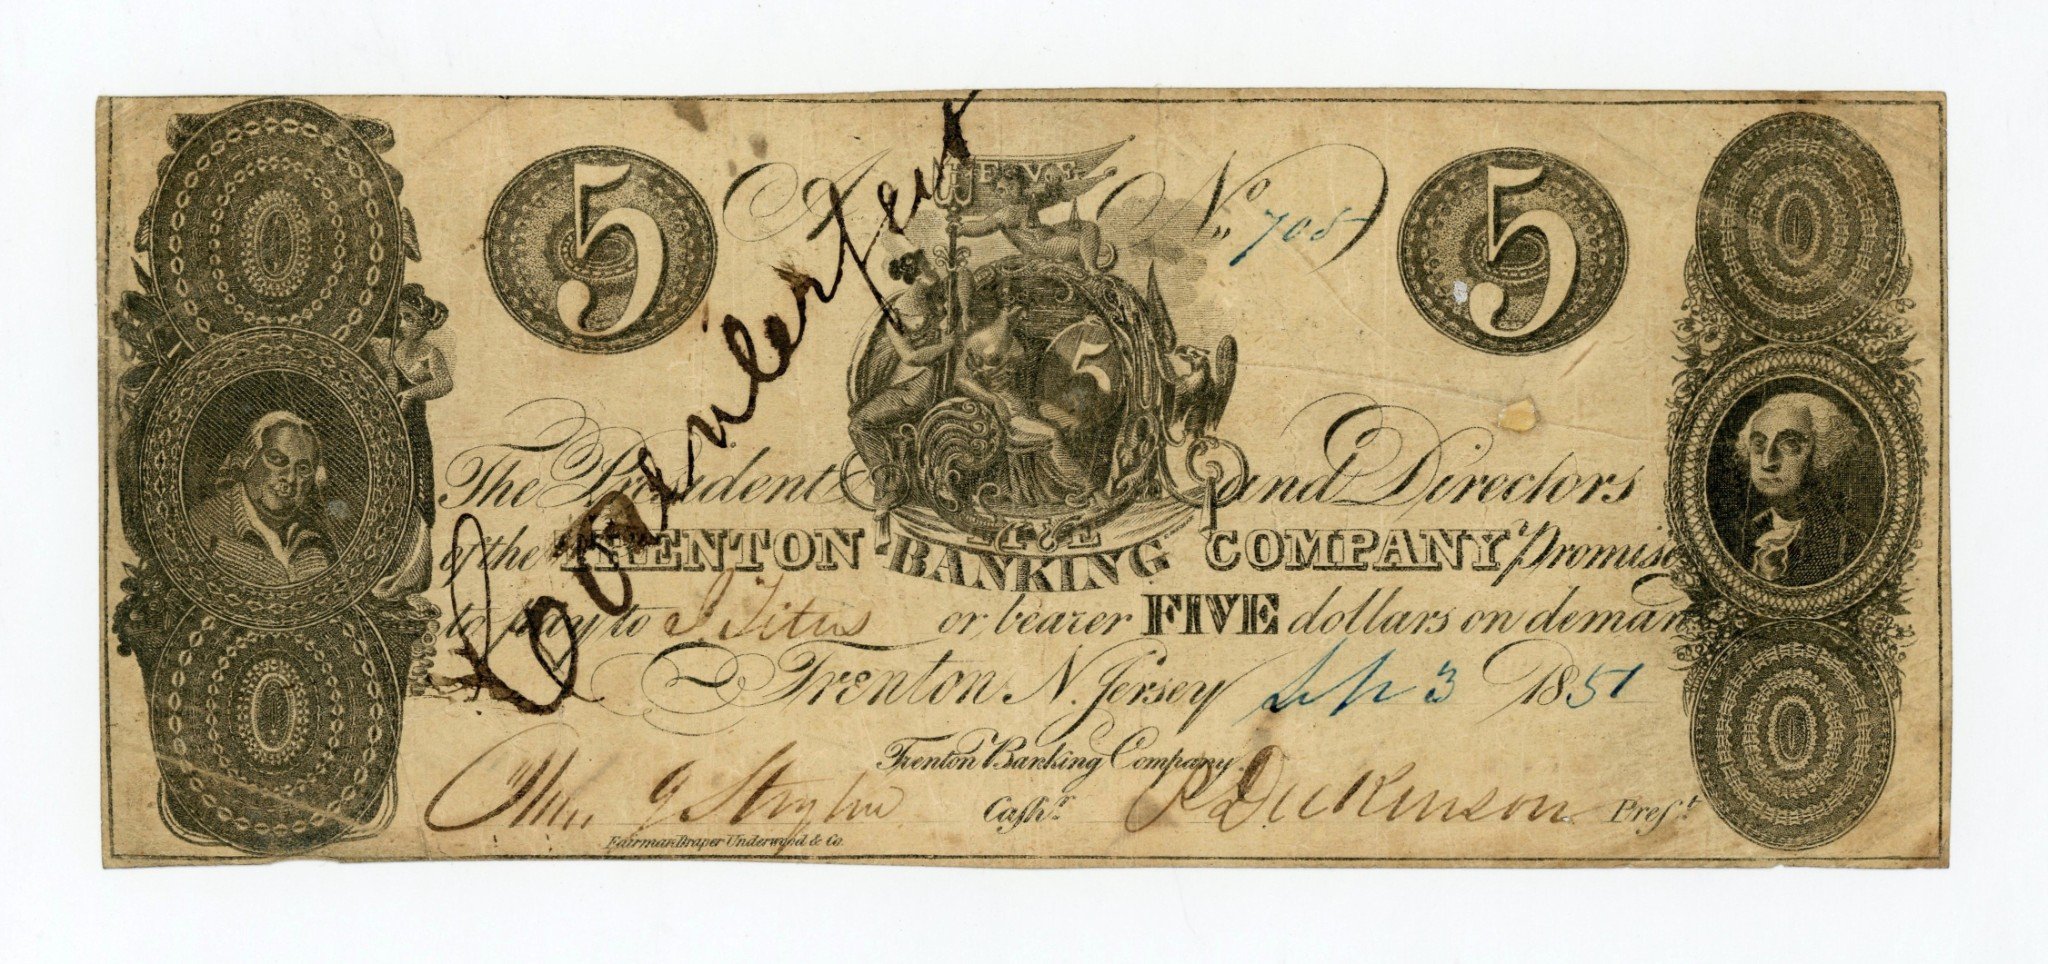 5
FIVE
No 705
5
Counterfeit
5
The President and Directors
of the TRENTON BANKING COMPANY Promise
to pay to J. Titus or bearer FIVE dollars on demand
Trenton N. Jersey Sep 3 1851
Trenton Banking Company
Cashr. P Dickinson Prest.
Fairman Draper Underwood & Co.